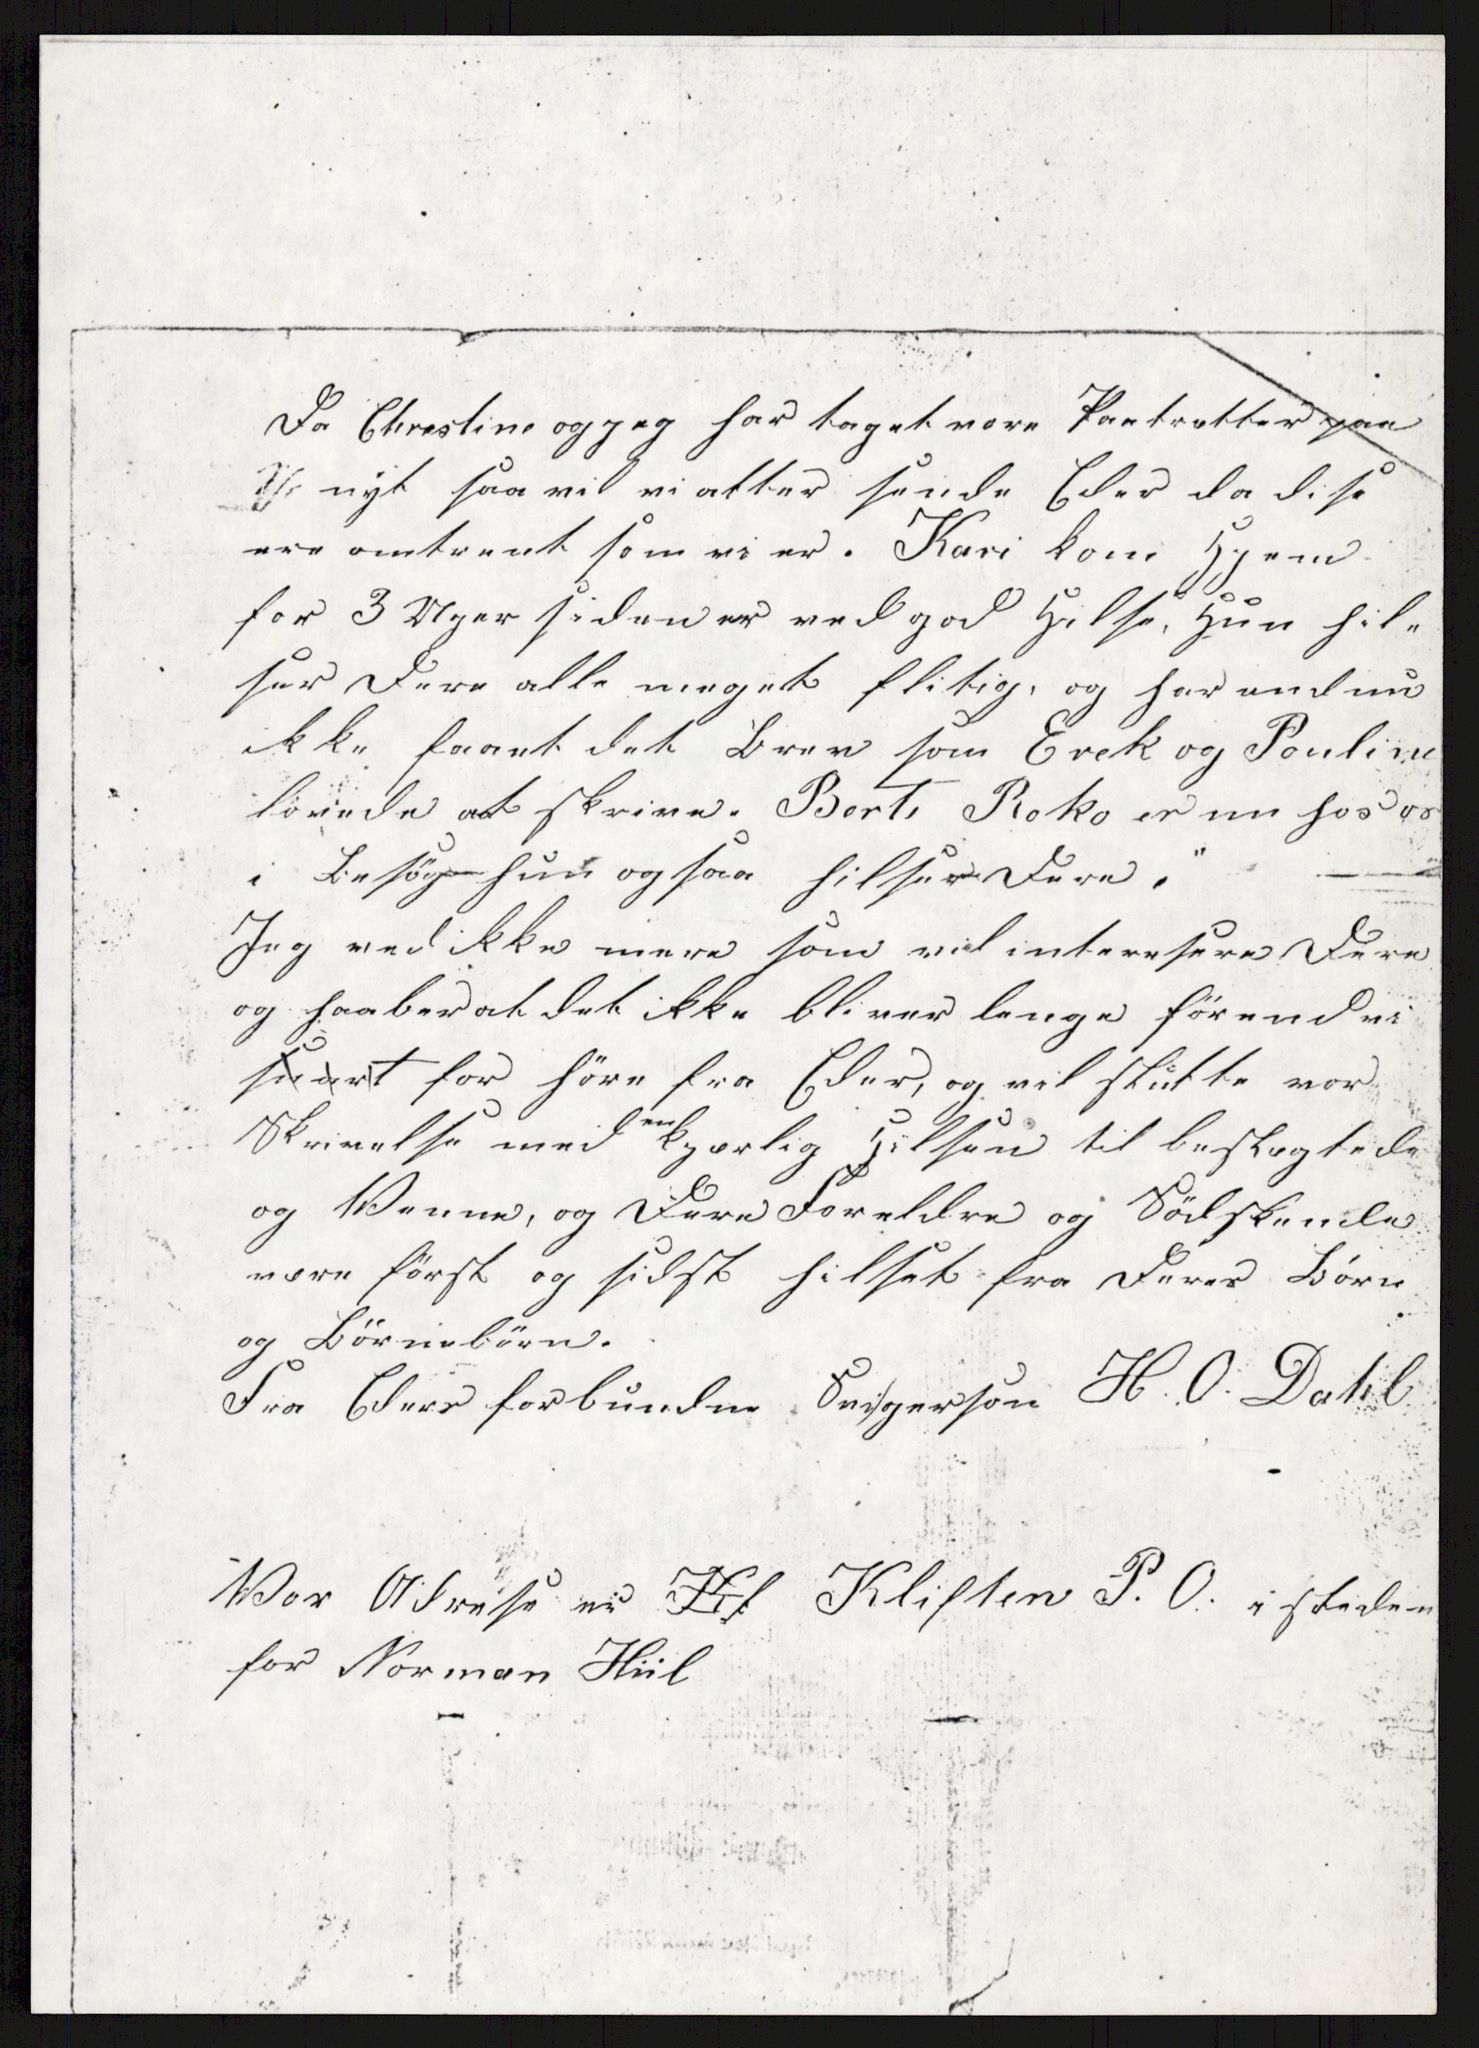 Da Chrestine og jeg har taget vore Paatratter paa
nyt saa vil vi atter sende Eder da dise
ere omtrent som vi er. Kari kom Hjem
for 3 Uger siden er ved god Helse, Hun hil-
ser Dere alle meget flitig, og har endnu
ikke faaet det Brev som Erek og Pouline
lovede at skrive. Berte Roko er nu hos os
i Besög hun ogsaa hilser Dere.
Jeg ved ikke mere som vil interesere Dere
og haaber at det ikke bliver lenge förend vi
snart for höre fra Eder, og vil slutte vor
Skrivelse med en kjærlig Hilsen til beslegtede
og Venne, og Dere Foreldre og Södskende
være först og sidst hilset fra Deres Börn
og Börnebörn.
Fra Eders forbundne Svigersön H. O. Dahl
Vor Adrese er Kliften P. O. i steden
for Norman Hiil